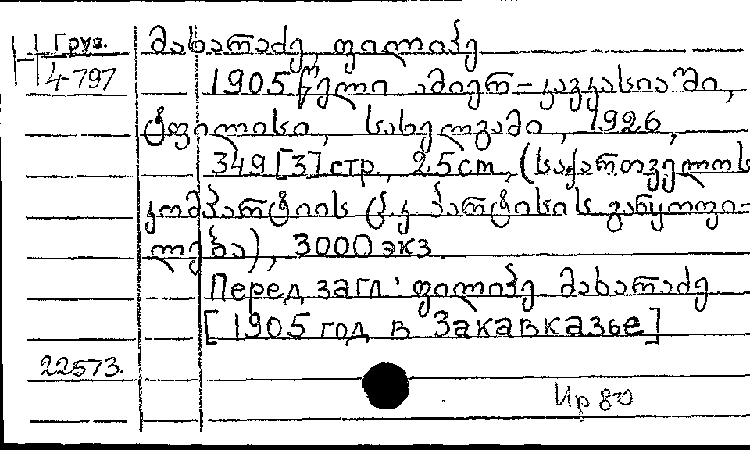 Груз.
4-797
მახარაძე, ფილიპე
1905 წელი ამიერ-კავკასიაში,
ტფილისი, სახელგამი, 1926,
349 [3] стр., 25 cm, (საქართველოს
კომპარტიის ც.კ. პარტისის განყოფი-
ლება), 3000 экз.
Перед загл: ფილიპე მახარაძე
[1905 год в Закавказье]
22573.
Ир 80